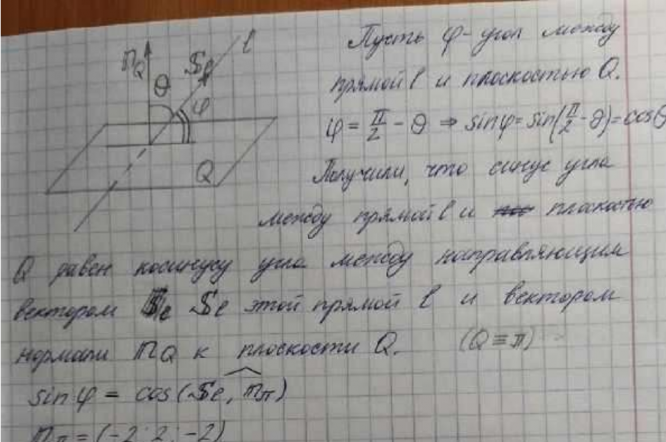 n̄Q S̄ℓ ℓ
θ
φ
Q
Пусть φ-угол между
прямой ℓ и плоскостью Q.
φ = π/2 - θ ⇒ sinφ = sin(π/2 - θ) = cosθ
Получили, что синус угла
между прямой ℓ и плоскостью
Q равен косинусу угла между направляющим
вектором S̄ℓ этой прямой ℓ и вектором
нормали n̄Q к плоскости Q. (Q ≡ π)
sinφ = cos(S̄ℓ, n̄π)
n̄π = (-2; 2; -2)